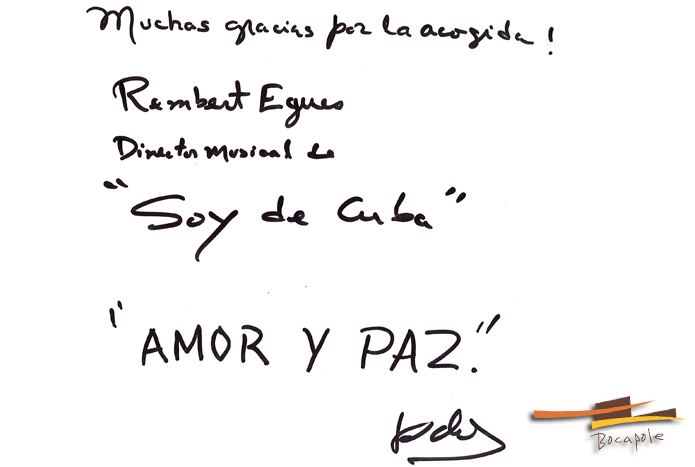 Muchas gracias por la acogida!
Rembert Egues
Director Musical de
"Soy de Cuba"
"AMOR Y PAZ."
Bocapole